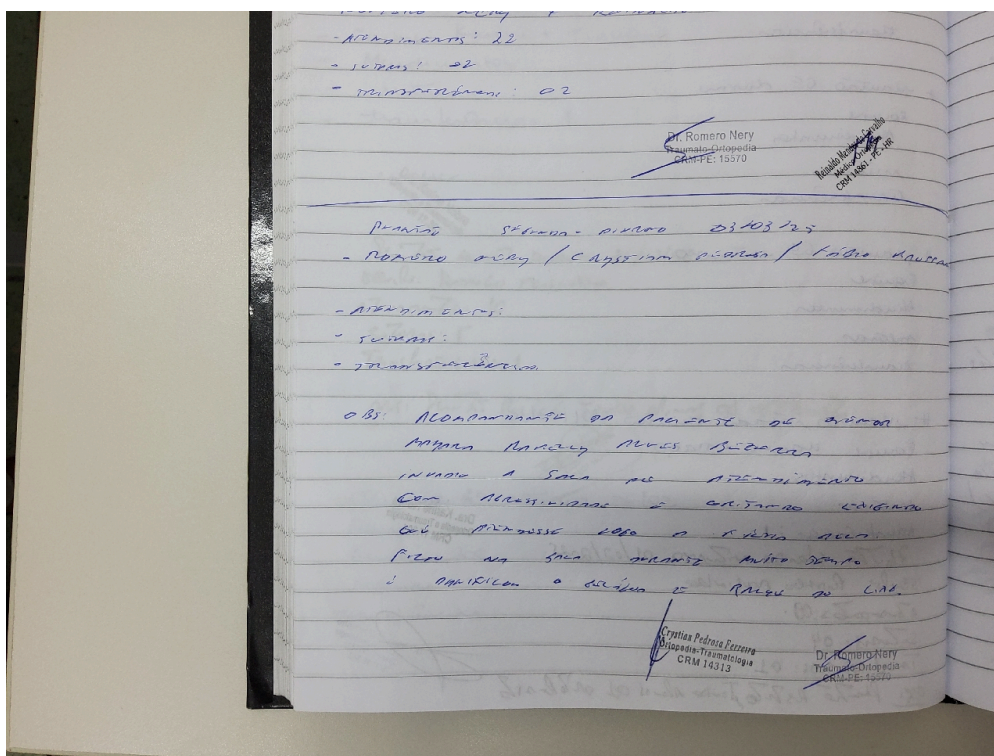 - ATENDIMENTOS: 22
- SUTURAS: 02
- TRANSFERÊNCIAS: 02
Dr. Romero Nery
Traumato-Ortopedia
CRM-PE: 15570
Médico Ortopedista
CRM 14861 - PE - HR
PLANTÃO SEGUNDA - DIURNO 03/03/25
- ROMERO NERY / CRYSTIAN PEDROSA / FÁBIO
- ATENDIMENTOS:
- SUTURAS:
- TRANSFERÊNCIA
OBS: ACOMPANHANTE DA PACIENTE DE
ALVES BEZERRA
INVADIU A SALA DE ATENDIMENTO
COM AGRESSIVIDADE E GRITANDO EXIGINDO
QUE ATENDESSE LOGO A DELA
FICOU NA SALA DURANTE MUITO TEMPO
E O E
Crystian Pedrosa Ferreira
Ortopedia-Traumatologia
CRM 14313
Dr. Romero Nery
Traumato-Ortopedia
CRM-PE: 15570